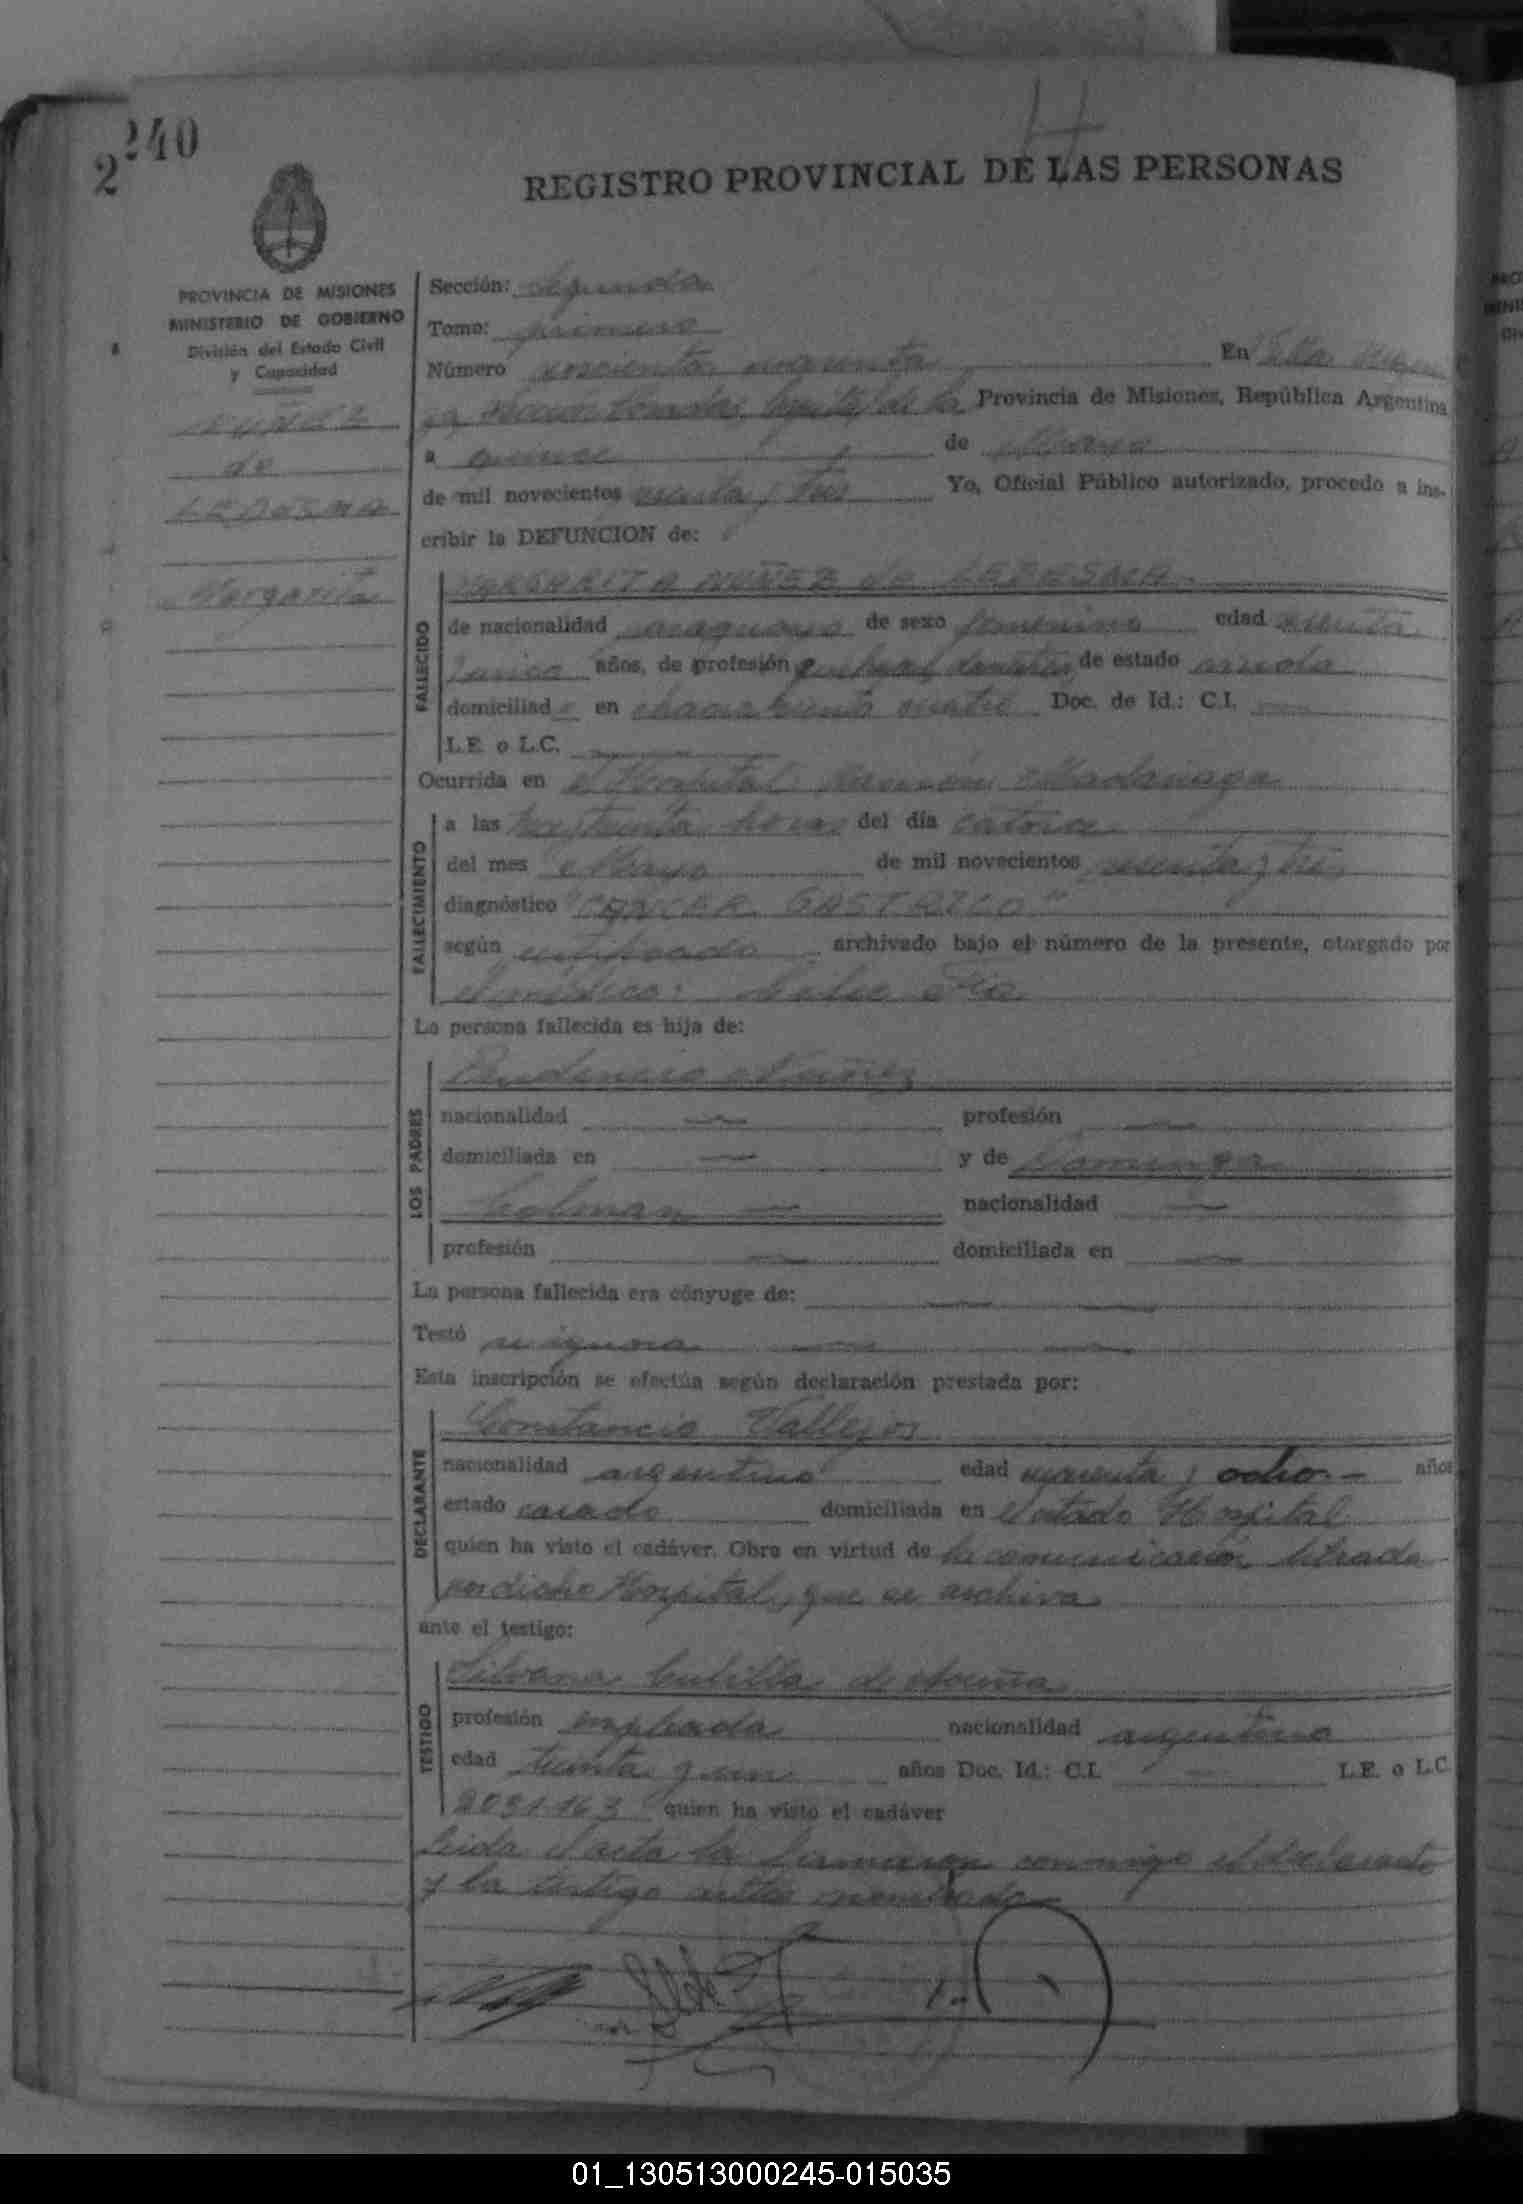 240
2
REGISTRO PROVINCIAL DE LAS PERSONAS
PROVINCIA DE MISIONES
MINISTERIO DE GOBIERNO
División del Estado Civil
y Capacidad
NUÑEZ
de
LEDESMA
Margarita
Sección: Segunda
Tomo: primero
Número doscientos cuarenta En Villa
Provincia de Misiones, República Argentina
a quince de Mayo
de mil novecientos sesenta y tres Yo, Oficial Público autorizado, procedo a ins-
cribir la DEFUNCION de:
FALLECIDO
MARGARITA NUÑEZ de LEDESMA
de nacionalidad paraguaya de sexo femenino edad
años, de profesión de estado viuda
domiciliad a en chacra ciento cuatro Doc. de Id.: C.I. —
L.E. o L.C. —
Ocurrida en el Hospital Ramón Madariaga
FALLECIMIENTO
a las treinta horas del día catorce
del mes Mayo de mil novecientos sesenta y tres
diagnóstico "CANCER GASTRICO"
según certificado archivado bajo el número de la presente, otorgado por
el médico:
La persona fallecida es hija de:
LOS PADRES
Nuñez
nacionalidad — profesión —
domiciliada en — y de Dominga
Colman — nacionalidad —
profesión — domiciliada en —
La persona fallecida era cónyuge de: — —
Testó se ignora — —
Esta inscripción se efectúa según declaración prestada por:
DECLARANTE
Constancio Vallejos
nacionalidad argentino edad cuarenta y ocho.- años
estado casado domiciliada en el citado Hospital
quien ha visto el cadáver. Obra en virtud de la comunicación librada
por dicho Hospital, que se archiva
ante el testigo:
TESTIGO
Silvana Cubilla de Acuña
profesión empleada nacionalidad argentina
edad treinta y un años Doc. Id.: C.I. — L.E. o L.C.
2031163 quien ha visto el cadáver
Leida el acta la firmaron conmigo el declarante
y la testigo antes nombrada
01_130513000245-015035